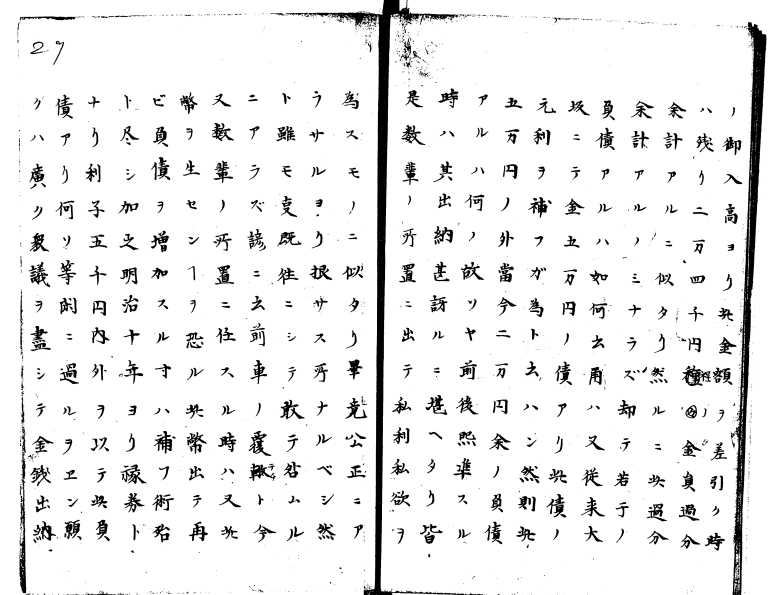 ノ御入高ヨリ此金額ヲ差引ク時
ハ残リ二万四千円程ノ金員過分
余計アルニ似タリ然ルニ此過分
余計アルノミナラズ却テ若干ノ
負債アルハ如何云用ハ又従来大
坂ニテ金五万円ノ債アリ此債ノ
元利ヲ補フガ為ト云ハン然則此
五万円ノ外當今二万円余ノ負債
アルハ何ノ故ソヤ前後照準スル
時ハ其出納甚訝ルニ堪ヘタリ皆
是数輩ノ所置ニ出テ私利私欲ヲ
27
為スモノニ似タリ畢竟公正ニア
ラサルヨリ根サス所ナルベシ然
ト雖モ更既往ニシテ敢テ咎ムル
ニアラズ諺ニ云前車ノ覆轍ト今
又数輩ノ所置ニ任スル時ハ又此
幣ヲ生センヿヲ恐ル此幣出テ再
ビ負債ヲ増加スル寸ハ補フ術殆
ト尽シ加之明治十年ヨリ禄券ト
ナリ利子五千円内外ヲ以テ此負
債アリ何ソ等閑ニ過ルヲヱン願
クハ廣ク衆議ヲ盡シテ金銭出納